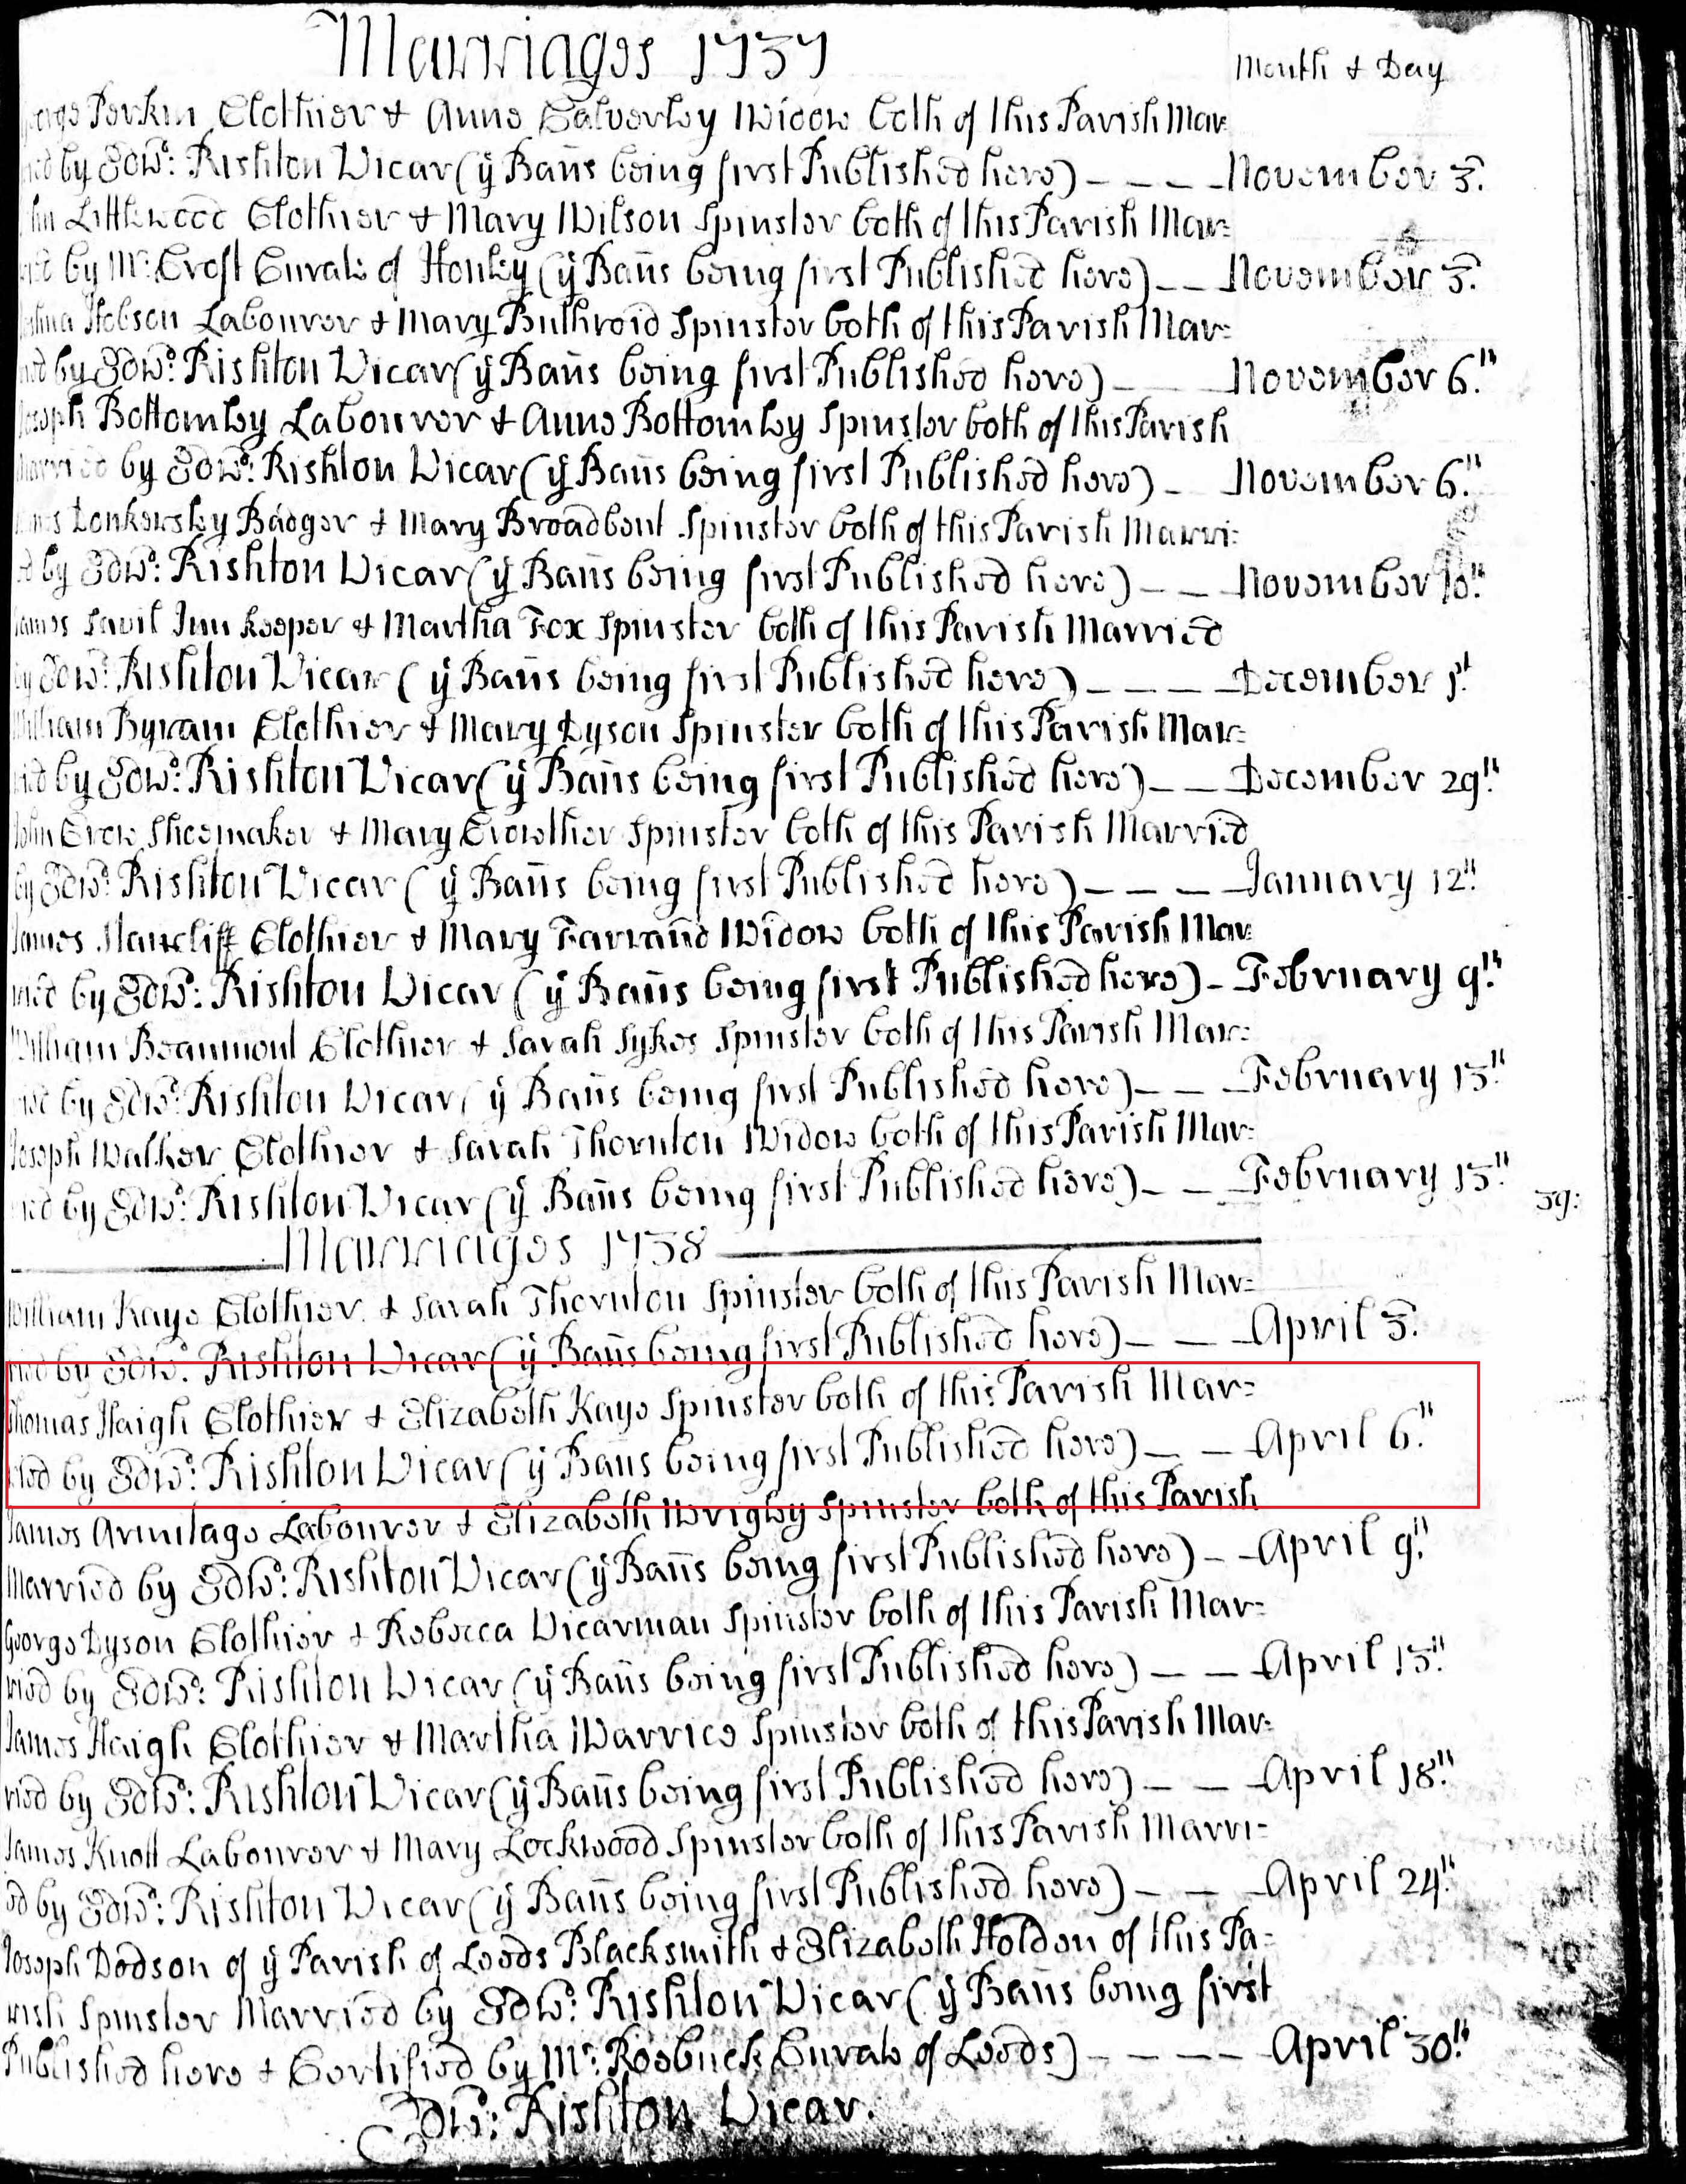 Marriages 1737
Month & Day
George Perkin Clothier & Anne Calverley Widow both of this Parish Mar
ried by Edwd: Rishton Vicar (ÿ Bañs being first Published here) – – – – November 3.
John Littlewood Clothier & Mary Wilson Spinster both of this Parish Mar=
ried by Mr: Croft Curate of Honley (ÿ Bañs being first Published here) – – November 3.
Joshua Hobson Labourer & Mary Buthroid Spinster both of this Parish Mar=
ried by Edwd: Rishton Vicar (ÿ Bañs being first Published here) – – November 6.th
Joseph Bottomley Labourer & Anne Bottomley Spinster both of this Parish
Married by Edwd: Rishton Vicar (ÿ Bañs being first Published here) – November 6.th
Lonkersley Badger & Mary Broadbent Spinster both of this Parish Marri=
ed by Edwd: Rishton Vicar (ÿ Bañs being first Published here) – – November 10.th
James Savil Inn keeper & Martha Fox Spinster both of this Parish Married
by Edwd: Rishton Vicar (ÿ Bañs being first Published here) – – – – December 1.st
William Byram Clothier & Mary Dyson Spinster both of this Parish Mar=
ried by Edwd: Rishton Vicar (ÿ Bañs being first Published here) – – December 29.th
John Crow Shoemaker & Mary Crowther Spinster both of this Parish Married
by Edwd: Rishton Vicar (ÿ Bañs being first Published here) – – – January 12.th
James Hancliff Clothier & Mary Farrand Widow both of this Parish Mar
ried by Edwd: Rishton Vicar (ÿ Bañs being first Published here) – February 9.th
William Beaumont Clothier & Sarah Sykes Spinster both of this Parish Mar=
ried by Edwd: Rishton Vicar (ÿ Bañs being first Published here) – – February 13.th
Joseph Walker Clothier & Sarah Thornton Widow both of this Parish Mar=
ried by Edwd: Rishton Vicar (ÿ Bañs being first Published here) – – February 13.th
39:
Marriages 1738
William Kaye Clothier & Sarah Thornton Spinster both of this Parish Mar=
ried by Edwd: Rishton Vicar (ÿ Bañs being first Published here) – – April 3.
Thomas Haigh Clothier & Elizabeth Kaye Spinster both of this Parish Mar=
ried by Edwd: Rishton Vicar (ÿ Bañs being first Published here) – – April 6.th
James Armitage Labourer & Elizabeth Wrigley Spinster both of this Parish
Married by Edwd: Rishton Vicar (ÿ Bañs being first Published here) – – April 9.th
George Dyson Clothier & Rebecca Vicarman Spinster both of this Parish Mar=
ried by Edwd: Rishton Vicar (ÿ Bañs being first Published here) – – April 13.th
James Haigh Clothier & Martha Warrice Spinster both of this Parish Mar=
ried by Edwd: Rishton Vicar (ÿ Bañs being first Published here) – – April 18.th
James Knott Labourer & Mary Lockwood Spinster both of this Parish Marri=
ed by Edwd: Rishton Vicar (ÿ Bañs being first Published here) – – – April 24.th
Joseph Dodson of ÿ Parish of Leeds Blacksmith & Elizabeth Holden of this Pa=
rish Spinster Married by Edwd: Rishton Vicar (ÿ Bañs being first
Published here & Certified by Mr: Roebuck Curate of Leeds) – – – – April 30.th
Edwd: Rishton Vicar.